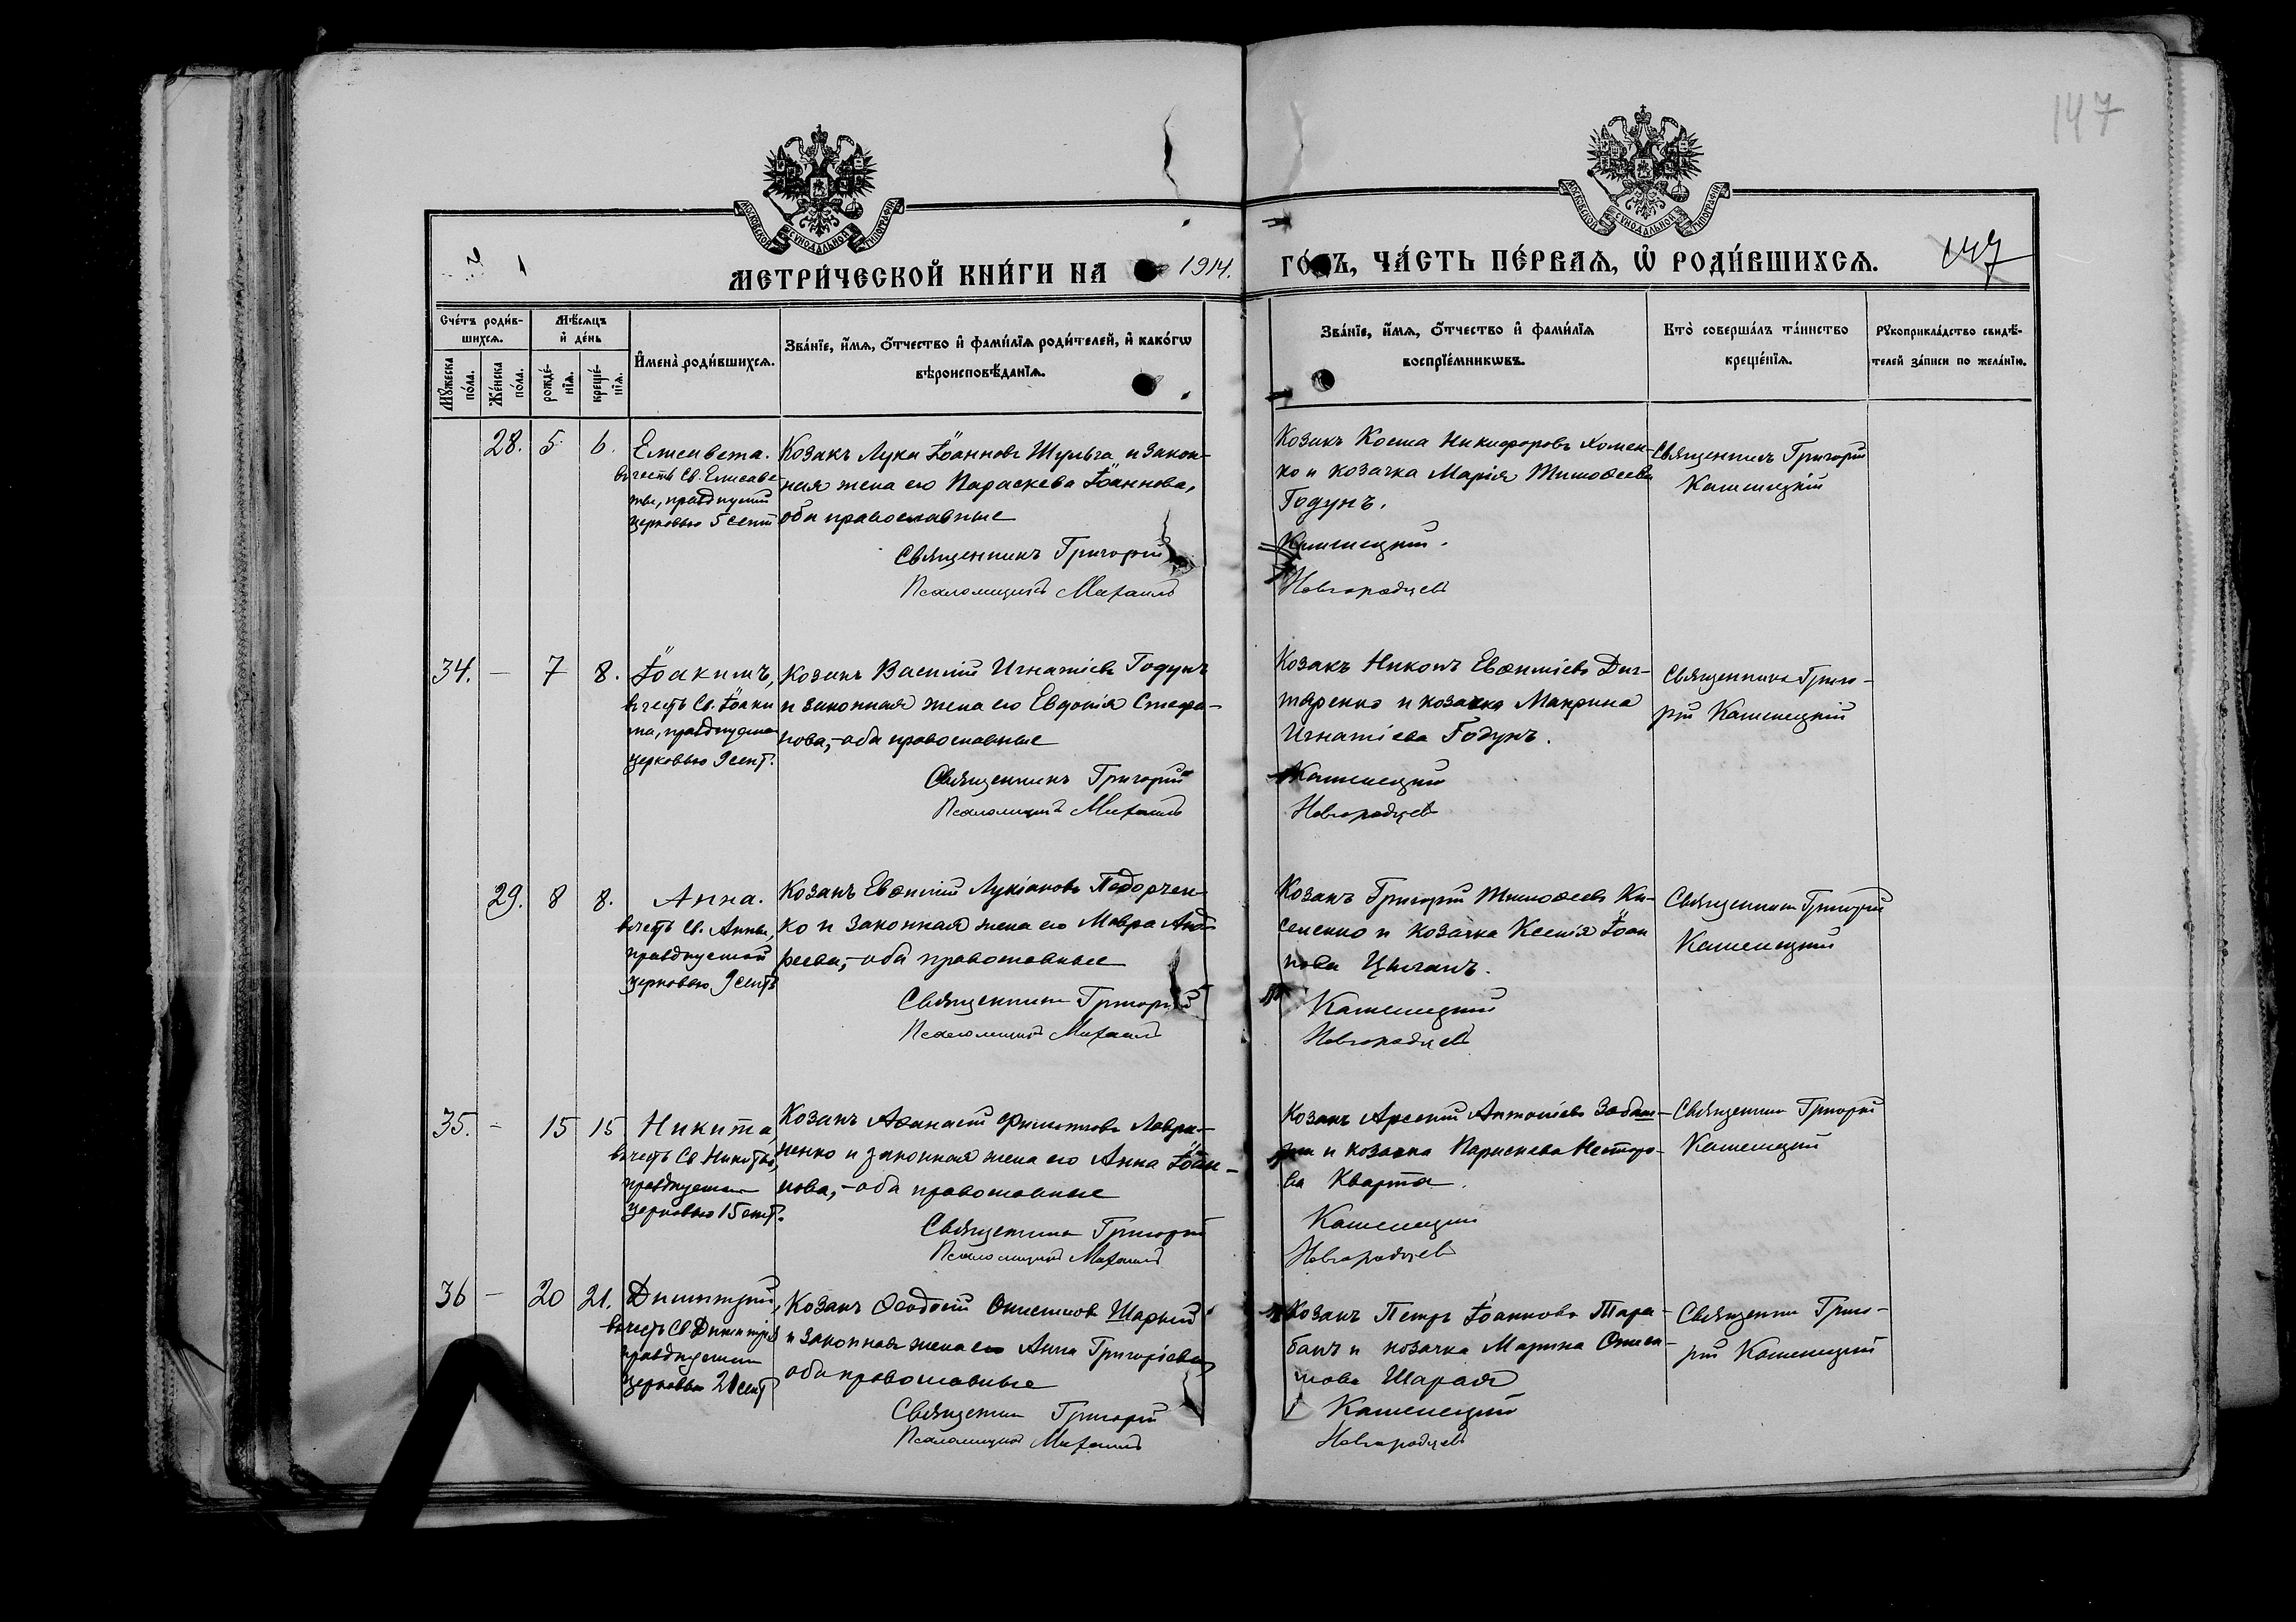 147
МОСКОВСКОЙ СУНОДАЛЬНОЙ ТИПОГРАФІИ
МОСКОВСКОЙ СУНОДАЛЬНОЙ ТИПОГРАФІИ
МЕТРИ́ЧЕСКОЙ КНИ́ГИ НА 1914.
ГО́ДЪ, ЧА́СТЬ ПЕ́РВАѦ, Ѡ҆ РОДИ́ВШИХСѦ.
147
Сче́тъ роди́в-
шихсѧ.
Мꙋ́жеска по́ла.
Же́нска по́ла.
Мѣ́сѧцъ
и҆ де́нь
рожде́-
нїѧ.
креще́-
нїѧ.
И҆мена̀ роди́вшихсѧ.
Зва́нїе, и҆́мѧ, ѻ҆́тчество и҆ фами́лїѧ роди́телей, и҆ како́гѡ
вѣроисповѣ́данїѧ.
Зва́нїе, и҆́мѧ, ѻ҆́тчество и҆ фами́лїѧ
воспрїе́мникѡвъ.
Кто̀ соверша́лъ та́инство
креще́нїѧ.
Рꙋкоприкла́дство свидѣ́-
телей за́писи по жела́нїю.
28. 5 6.
Елисавета.
въ честь Св. Елисаве-
ты, празднуемой
церковью 5 сент
Козакъ Лука Іоанновъ Шульга и закон-
ная жена его Параскева Іоаннова,
оба православные
Священникъ Григорій
Псаломщикъ Михаилъ
Козакъ Косма Никифоровъ Хомен-
ко и козачка Марія Тимоѳеева
Годунъ.
Каменецкій.
Новгородцевъ
Священникъ Григорій
Каменецкій
34. — 7 8.
Іоакимъ,
въ честь Св. Іоаки
ма, празднуемаго
церковью 9 сент.
Козакъ Василій Игнатіевъ Годунъ
и законная жена его Евдокія Стефа-
нова,-оба православные
Священникъ Григорій
Псаломщикъ Михаилъ
Козакъ Никонъ Евѳиміевъ Дих-
тяренко и козачка Макрина
Игнатіева Годунъ.
Каменецкій
Новгородцевъ
Священникъ Григо-
рій Каменецкій
29. 8 8.
Анна.
въ честь Св. Анны,
празднуемой
церковью 9 сент
Козакъ Евѳимій Лукіановъ Подорчен-
ко и законная жена его Мавра Анд-
реева,-оба православные
Священникъ Григорій
Псаломщикъ Михаилъ
Козакъ Григорій Тимоѳеевъ Ки-
селенко и козачка Ксенія Іоан
нова Цыганъ.
Каменецкій
Новгородцевъ
Священникъ Григорій
Каменецкій
35. - 15 15
Никита,
въ честь Св. Никиты,
празднуемаго
церковью 15 сент.
Козакъ Аѳанасій Филипповъ Лаври-
ненко и законная жена его Анна Іоан-
нова,-оба православные
Священникъ Григорій
Псаломщикъ Михаилъ
Козакъ Арсеній Антоніевъ
и козачка Параскева Несторо-
ва Кварта.
Каменецкій
Новгородцевъ
Священникъ Григорій
Каменецкій
36 - 20 21.
Димитрій,
въ честь Св. Димитрія
празднуемаго
церковью 21 сент
Козакъ Ѳеодосій Онисимовъ Шарый
и законная жена его Анна Григоріева,
оба православные
Священникъ Григорій
Псаломщикъ Михаилъ
Козакъ Петръ Іоанновъ Тара-
банъ и козачка Марина Ониси-
мова Шарая
Каменецкій
Новгородцевъ
Священникъ Григо-
рій Каменецкій